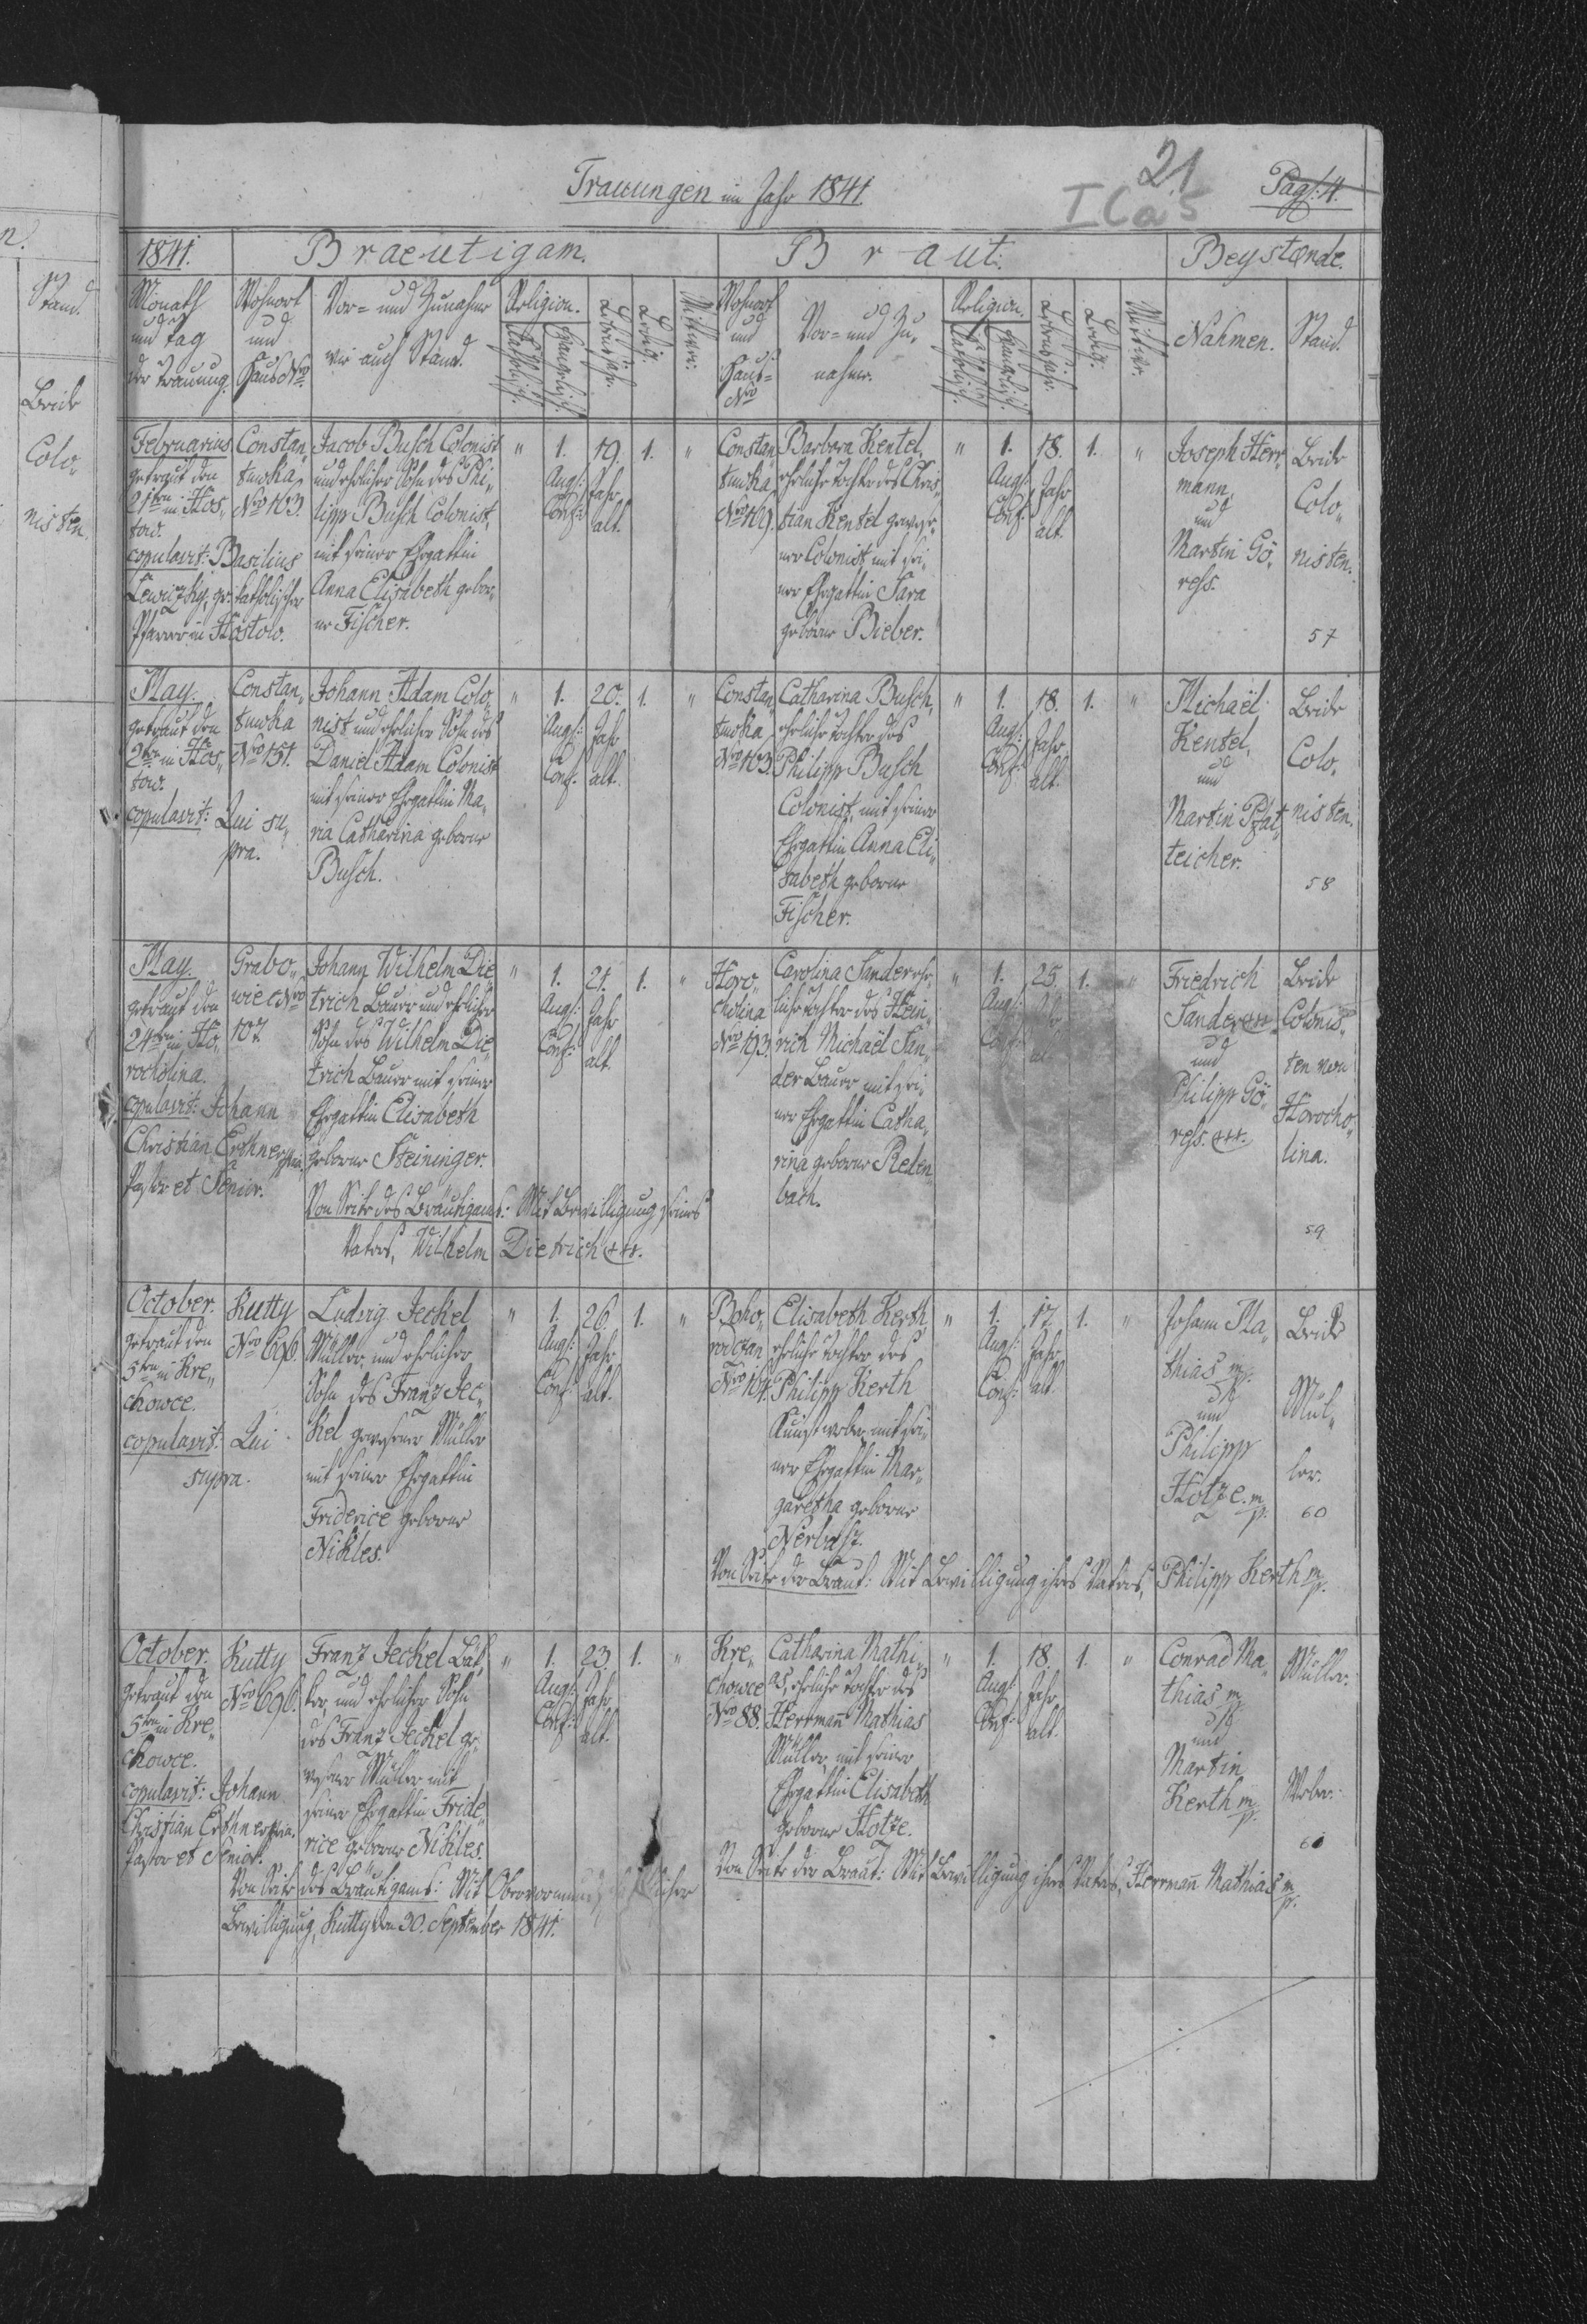 Trauungen im Jahr 1841.
21
I Ca 5
Pag: 4.
n.
Stand.
Beide
Colo„
nisten.
1841.
Braeutigam.
Braut.
Beystænde.
Monath
und Tag
der Trauung.
Wohnort
und
Haus Nro
Vor= und Zunahme
wie auch Stand.
Religion.
Katholisch.
Evangelisch.
Lebensjahr.
Ledig.
Wittwer.
Wohnort
und
Haus=
Nro
Vor= und Zu„
nahme.
Religion.
Katholisch.
Evangelisch.
Lebensjahr.
Ledig.
Wittwe.
Nahmen.
Stand.
Februarius
getraut den
21ten in Hos„
tow.
copulavit: Basilius
Lewiczky, gr. katholischer
Pfarrer in Hostow.
Constan„
tuwka
Nro 103.
Jacob Busch Colonist
und ehelicher Sohn des Phi„
lipp Busch Colonist,
mit seiner Ehegattin
Anna Elisabeth gebor„
ne Fischer.
„
1.
Aug:
Conf:
19.
Jahr
alt.
1.
„
Constan„
tuwka
Nro 109.
Barbara Kentel,
eheliche Tochter des Chris„
tian Kentel gewese„
ner Colonist, mit sei„
ner Ehegattin Sara
geborne Bieber.
„
1.
Aug:
Conf:
18.
Jahr
alt.
1.
Joseph Herr„
mann,
und
Martin Gö„
ress.
Beide
Colo„
nisten.
57
May.
getraut den
2ten in Hos„
tow.
copulavit: Qui su„
pra.
Constan„
tuwka
Nro 151.
Johann Adam Colo„
nist und ehelicher Sohn des
Daniel Adam Colonist
mit seiner Ehegattin Ma„
ria Catharina geborne
Busch.
„
1.
Aug:
Conf:
20.
Jahr
alt.
1.
„
Constan„
tuwka
Nro 103.
Catharina Busch,
eheliche Tochter des
Philipp Busch
Colonist, mit seiner
Ehegattin Anna Eli„
sabeth geborne
Fischer.
„
1.
Aug:
Conf:
18.
Jahr
alt.
1.
„
Michaël
Kentel,
und
Martin Pfat„
teicher.
Beide
Colo„
nisten.
58
May.
getraut den
24ten in Ho„
rocholina.
copulavit: Johann
Christian Erthner
Pastor et Senior.
Grabo„
wiec Nro
107.
Johann Wilhelm Die„
trich Bauer und ehelicher
Sohn des Wilhelm Die„
trich Bauer mit seiner
Ehegattin Elisabeth
geborne Steininger.
Von Seite des Bräutigams: Mit Bewilligung seines
Vaters, Wilhelm Dietrich +++.
„
1.
Aug:
Conf:
21.
Jahr
alt.
1.
„
Horo„
cholina
Nro 193.
Carolina Sander ehe„
liche Tochter des Hein„
rich Michaël San„
der Bauer mit sei„
ner Ehegattin Catha„
rina geborne Reden„
bach.
„
1.
Aug:
Conf:
25.
Jahr
alt.
1.
„
Friedrich
Sander +++
und
Philipp Gö„
ress. +++.
Beide
Colonis„
ten von
Horocho„
lina.
59
October.
getraut den
5ten in Kre„
chowce.
copulavit: Qui
supra.
Kutty
Nro 696.
Ludwig Jeckel
Müller und ehelicher
Sohn des Franz Jec„
kel gewesener Müller
mit seiner Ehegattin
Friderice geborne
Nikles.
„
1.
Aug:
Conf:
26.
Jahr
alt.
1.
„
Boho„
rodczan
Nro 104.
Elisabeth Kerth
eheliche Tochter des
Philipp Kerth
Kunstweber mit sei„
ner Ehegattin Mar„
garetha geborne
Nerbass.
Von Seite der Braut: Mit Bewilligung ihres Vaters, Philipp Kerth mp.
„
1.
Aug:
Conf:
17.
Jahr
alt.
1.
„
Johann Ma„
thias mp.
und
Philipp
Hotze. mp.
Beide
Mül„
ler.
60
October.
getraut den
5ten in Kre„
chowce.
copulavit: Johann
Christian Erthner
Pastor et Senior.
Kutty
Nro 696.
Franz Jeckel Bäc„
ker, und ehelicher Sohn
des Franz Jeckel ge„
wesener Müller mit
seiner Ehegattin Fride„
rice geborne Nikles.
Von Seite des Bräutigams: Mit Obervormundschaftlicher
Bewilligung, Kutty den 30. September 1841.
„
1.
Aug:
Conf:
23
Jahr
alt.
1.
„
Kre„
chowce
Nro 88.
Catharina Mathi„
as, eheliche Tochter des
Herrmann Mathias
Müller mit seiner
Ehegattin Elisabeth
geborne Hotze.
Von Seite der Braut: Mit Bewilligung ihres Vaters, Herrmann Mathias mp.
„
1.
Aug:
Conf:
18.
Jahr
alt.
1.
„
Conrad Ma„
thias mp
und
Martin
Kerth mp.
Müller.
Weber.
61